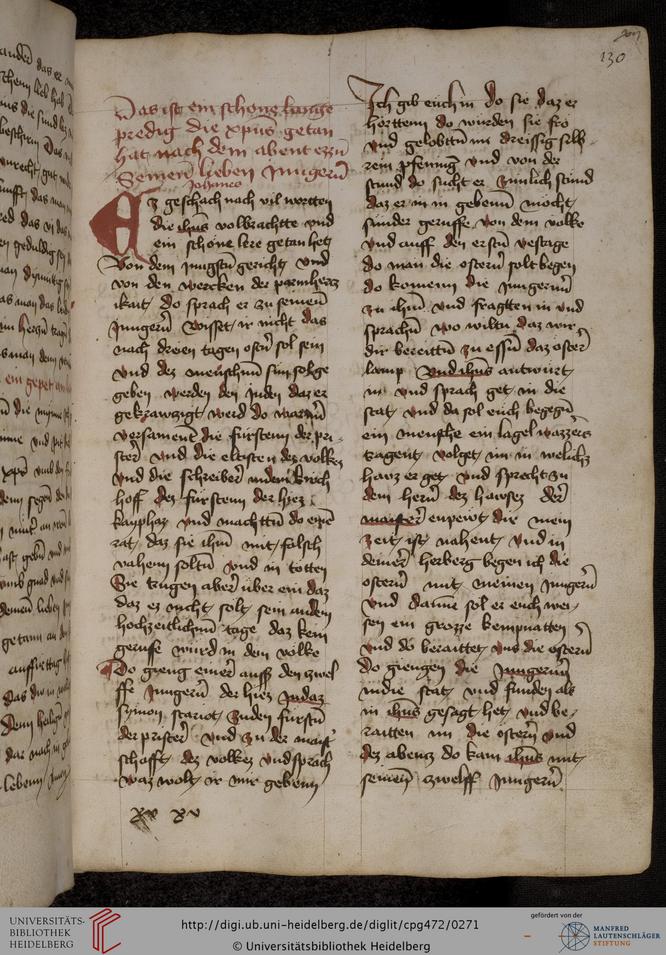 130
Das ist ein schone lange
predig die xpūs getan
hat nach dem abent ezzn̄
Seinen̄ lieben Jungern̄
Johannes
Ez geschach nach vil wortten
die ihūs volbrachtte vnd
ein schone lere getan het
Von dem iungstn̄ gericht vnd
von den wercken der parmhercz
ikait do sprach er zu seinen̄
Jungern̄ wisset ir nicht das
nach dreien tagen ostn̄ sol sein
vnd dez menschnn̄ sun solge
geben werden den Juden daz er
gekrawczigt werd do warnn̄
versament die furstenn der pri
stern̄ vnd die eltisten dez volkez
vnd die schreiber in dem kirch
hoff dez furstenn der hiez
kayphaz vnd machttn̄ do einē
rat daz sie ihm̄ mit falsch
vahenn soltn̄ vnd in totten
Sie trugen aber̄ vber ein daz
daz ez nicht solt sein an dem
hochzeitlichnn̄ tage daz kein
geruffe wurd in dem volke
Do gieng einer̄ auss den zwel
ffe Jungern̄ der hiez Judaz
symon scariot zu den furstn̄
der prister̄ vnd zu der meist
schafft dez volkez vnd sprach
waz wolt ir mir gebenn
Ich gib euch in do sie daz er
horttenn do wurden sie fro
vnd gelobttn̄ im dreissig silb
rein pfenning vnd von der
stund do sucht er zimlich stund
daz er in in gebenn̄ mocht
sunder geruffe von dem volke
vnd auff den erstn̄ vestage
do man die ostern̄ solt begen
do komenn die Jungernn̄
zu ihm̄ vnd fragtten in vnd
sprachn̄ wo wiltu daz wir
dir bereittn̄ zu essn̄ daz oster̄
lamp vnd ihūs antwurt
in vnd sprach get in die
stat vnd da sol euch begegn̄
ein mensche ein lagel wazzers
tragent volget im in welichz
hawz er get vnd sprecht zu
dem hern̄ dez hawsez der̄
maister̄ enpewt dir mein
zeit ist nahent vnd in
deiner̄ herberg begen ich die
ostern̄ mit meinen Jungern̄
vnd danne sol er euch wei
sen ein grozze kemnatten
vnd do beraittet vns die ostern̄
Do giengen die Jungernn̄
in die stat vnd funden als
in ihūs gesagt het vnd be
raitten im die ostern̄ vnd
dez abencz do kam ihūs mit
seinen̄ zwelff Jungern̄
UNIVERSITÄTS-
BIBLIOTHEK
HEIDELBERG
http://digi.ub.uni-heidelberg.de/diglit/cpg472/0271
© Universitätsbibliothek Heidelberg
gefördert von der
MANFRED
LAUTENSCHLÄGER
STIFTUNG